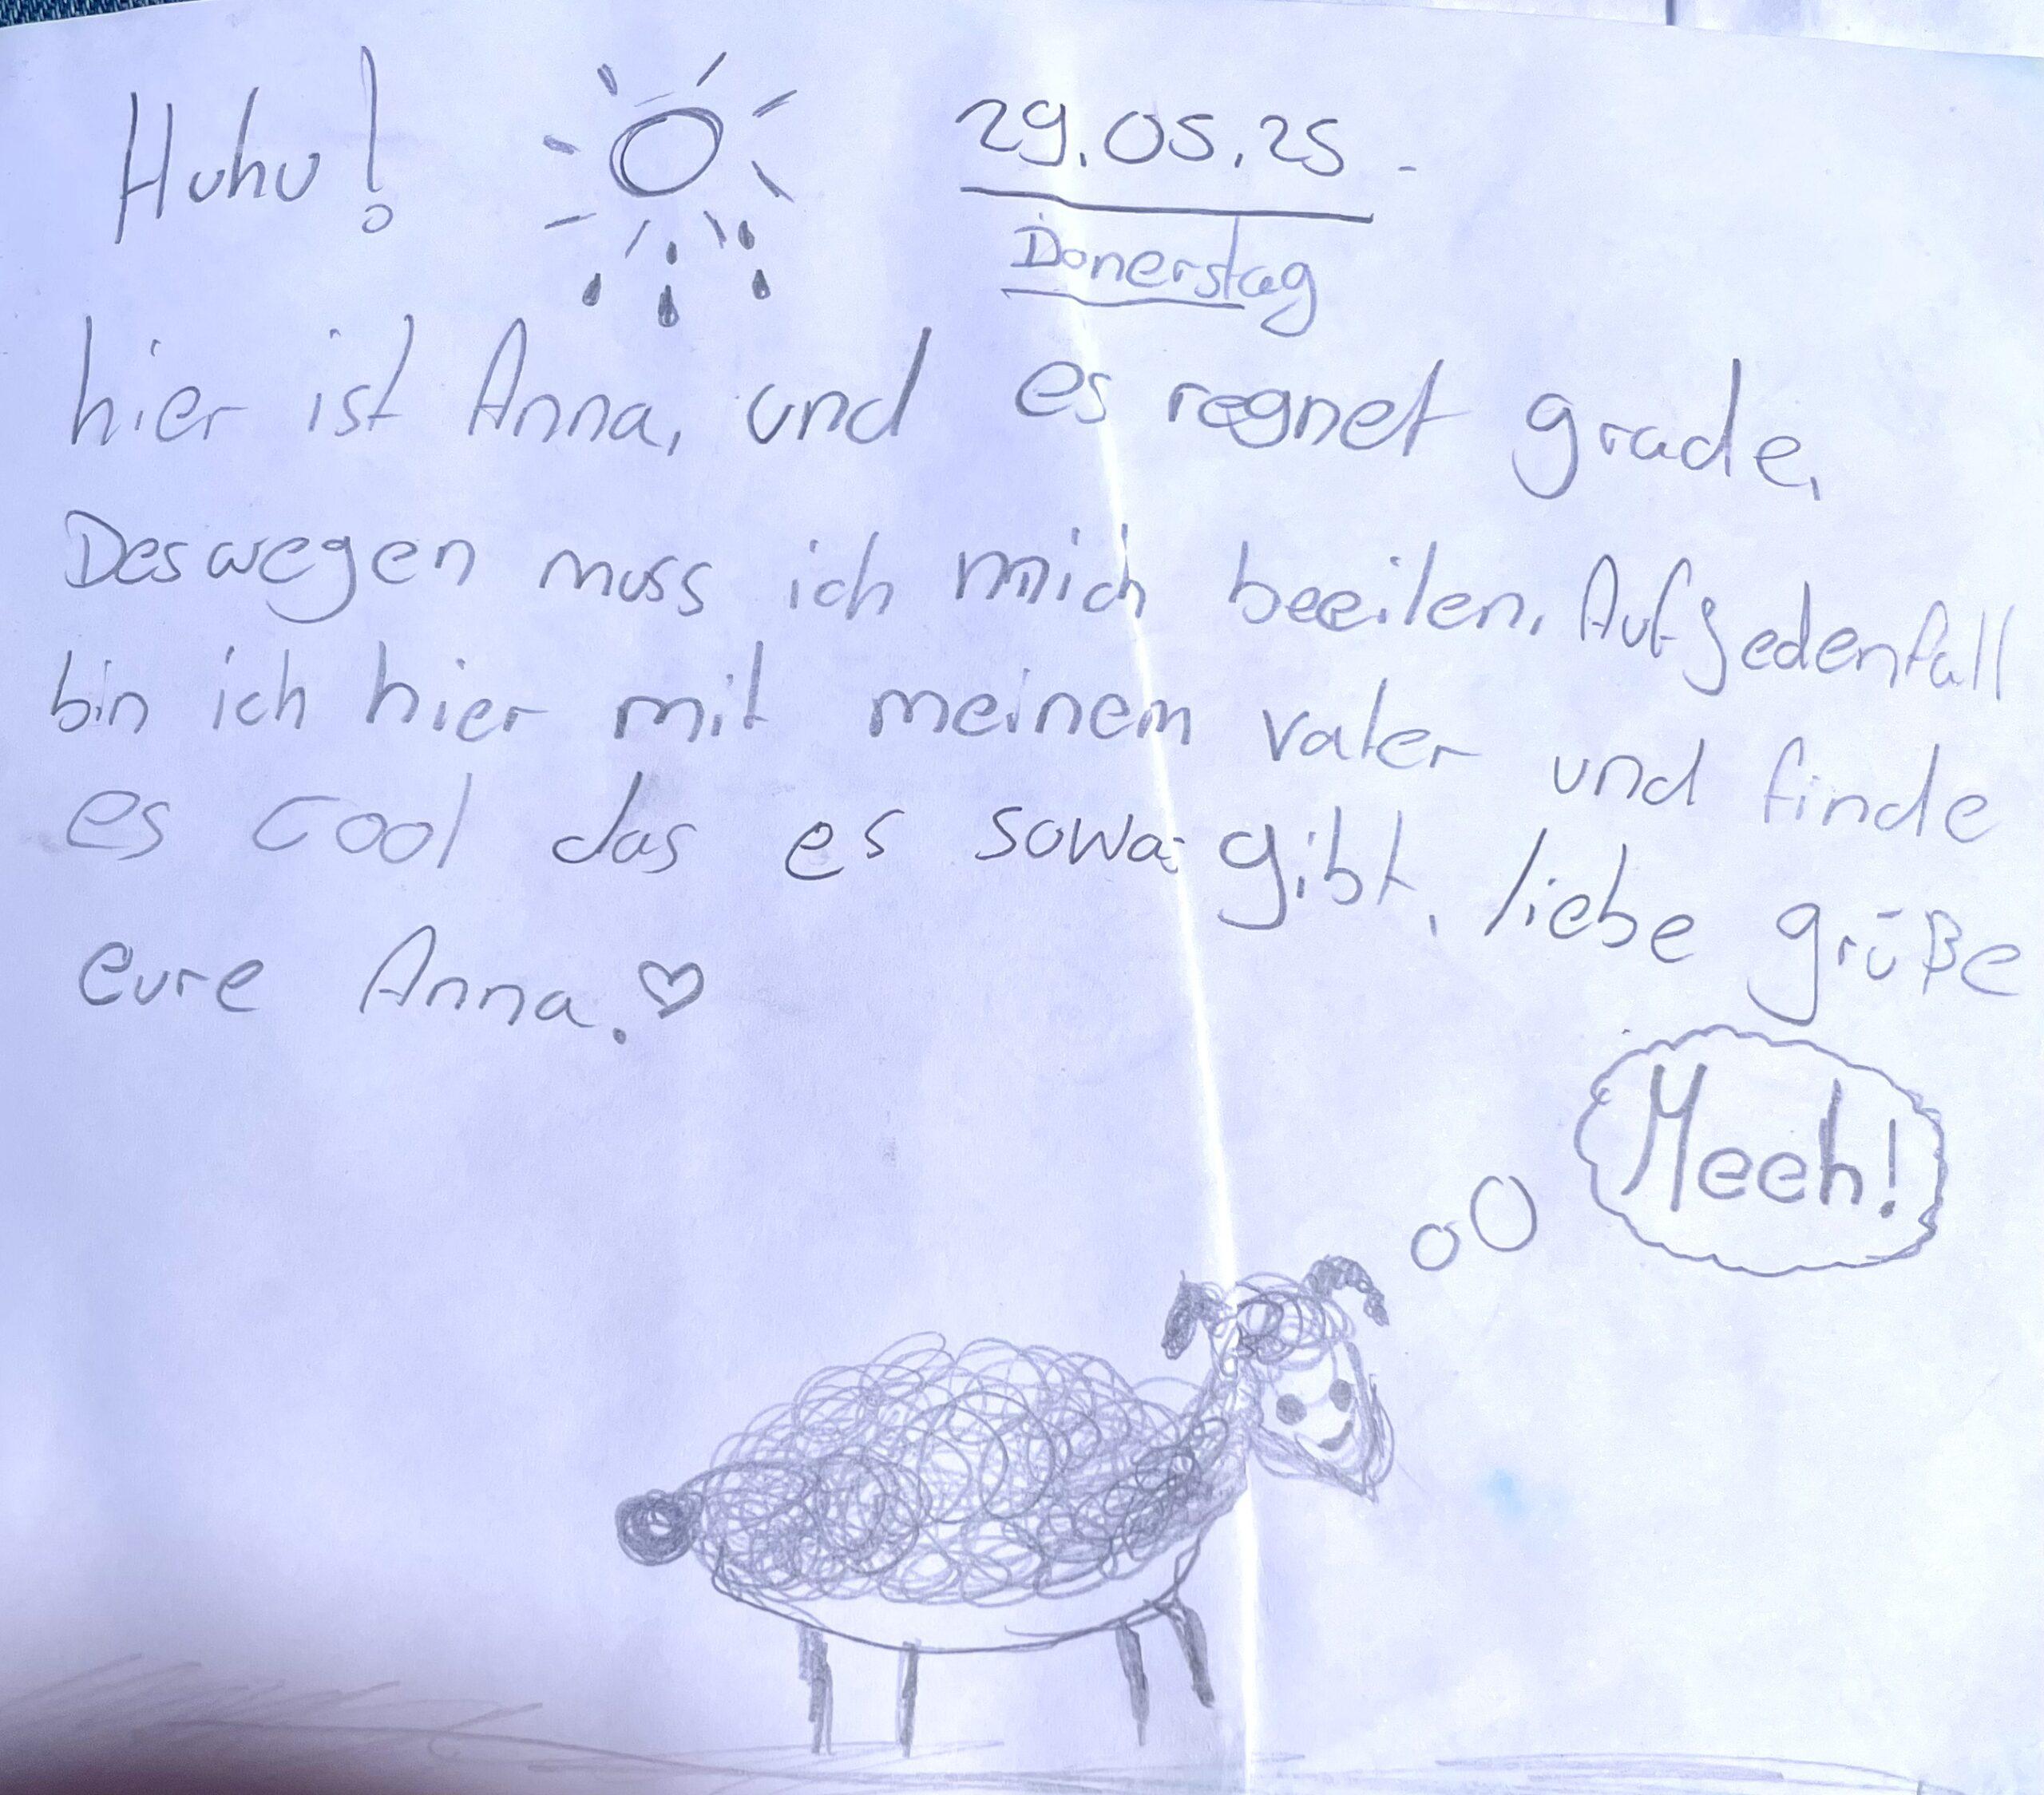 Huhu!
29.05.25
Donerstag
hier ist Anna, und es regnet grade.
Deswegen muss ich mich beeilen. Auf Jedenfall
bin ich hier mit meinem vater und finde
es cool das es sowas gibt. liebe grüße
eure Anna.♡
Meeh!